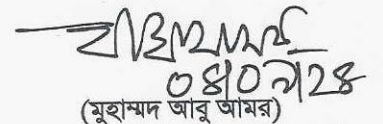 ০৪/০৭/২৪
(মুহাম্মদ আবু আমর)